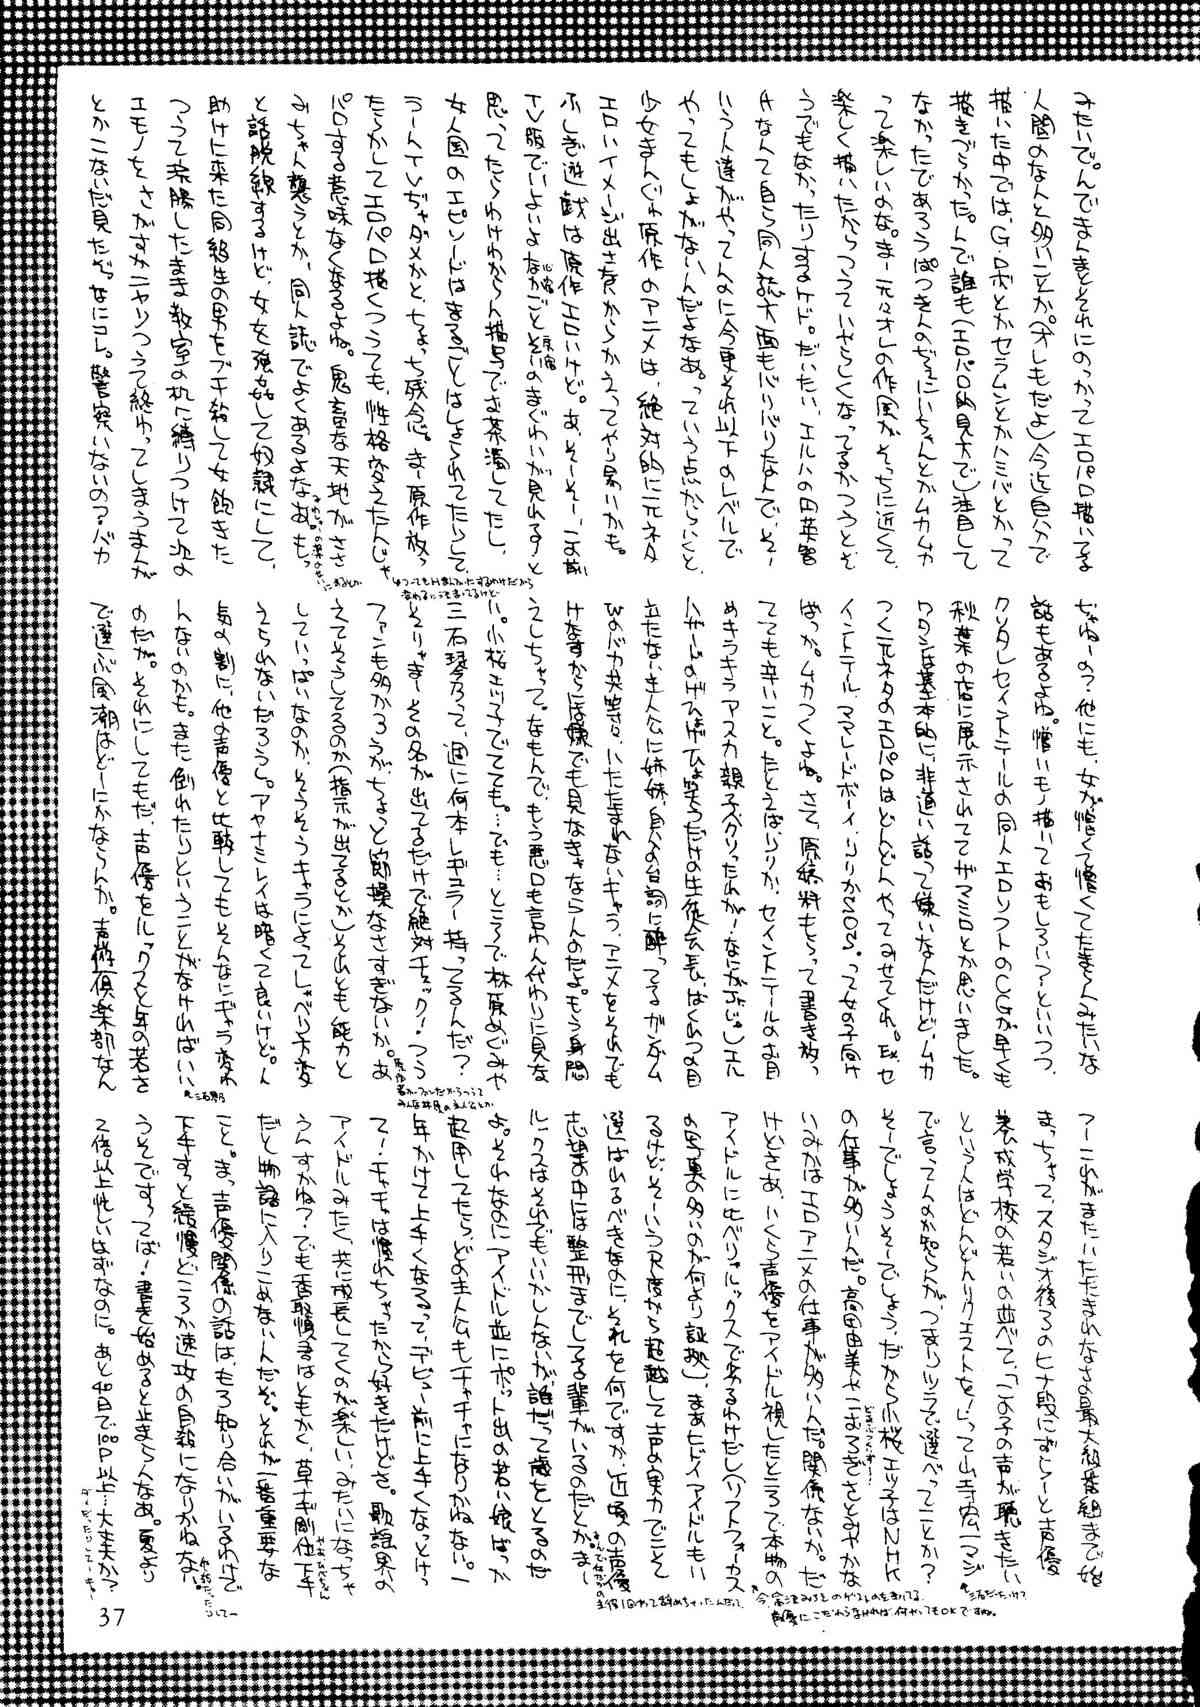 みたいで。んでまんまとそれにのっかってエロパロ描いてる
人間のなんと多いことか。(オレもだよ)今迄自分で
描いた中では、Gロボとかセラムンとかハミパとかって
描きづらかった。んで誰も(エロパロ的見方で)注目して
なかったであろう
って楽しいのな。まー元々オレの作風がそっちに近くて、
楽しく描いたからっつうていやらしくなってるかっつうとそ
うでもなかったりするケド。だいたい、エルハの田英智
なんて自ら同人誌方面もバリバリなんで、そー
いう人達がやってんのに今更それ以下のレベルで
やってもしょーがないんだよなあ。っていう点からいくと、
少女まんが原作のアニメは、絶対的に元ネタ
エロいイメージ出さないからかえってやり易いかも。
ふしぎ遊戯は原作エロいけど。あ、そーそー、こないだ
TV版でいよいよなかごとそいのまぐわいが見れるすと
思ってたらわけわからん描写でお茶濁してたし、
女人国のエピソードはまるごとはしょられてたりして、
うーんTVぢゃダメかと、ちょっち残念。まー原作放っ
たらかしてエロパロ描くっつうても、性格変えたんじゃ
パロする意味なくなるよね。鬼畜な天地がささ
みちゃん襲うとか、同人誌でよくあるよなあ。もっ
と話脱線するけど、女を強姦して奴隷にして、
助けに来た同級生の男をブチ殺して女飽きた
つって浣腸したまま教室の机に縛りつけて次の
エモノをさがすかニヤリつうて終わってしまうまんが
とかこないだ見たぞ。なにコレ。警察いないの?バカ
ぢゃねーの?他にも、女が憎くて憎くてたまらんみたいな
話もあるよね。憎いモノ描いておもしろい?といいつつ、
クソタレセイントテールの同人エロソフトのCGが早くも
秋葉の店に展示されててザマミロとか思いました。
ワタシは基本的に、非道い話って嫌いなんだけど、ムカ
つく元ネタのエロパロはどんどんやってみせてくれ。Ex.セ
イントテール、ママレードボーイ、りりかSOS。って女の子向け
ばっか。ムカつくよね。さて、原稿料もらって書き放っ
てても辛いこと。たとえばりりか、セイントテールのお目
めキラキラアスカ親子ベクリったれが!なにがJr.じゃ!エル
ハザードのげひょげひょ笑うだけの生徒会長、ばくれつの目
立たない主人公に姉妹、自分の台詞に酔ってるガンダム
Wのバカ共等々、いたたまれないキャラ、アニメをそれでも
けなすからには嫌でも見なきゃならんのだよ。もう身悶
えしちゃって。なもんで、もう悪口も言わん代わりに見な
い。小桜エツ子でてても。…でも…ところで林原めぐみや
三石琴乃って、週に何本レギュラー持ってるんだ?
そりゃまーその名が出てるだけで絶対チェック!つう
ファンも多かろうが、ちょっと節操なさすぎないか。あ
えてそうしてるのか(指示が出てるとか)それとも能力と
していっぱいなのか、そうそうキャラによってしゃべり方変
えられないだろうし。アヤナミレイは暗くて良いけど。ん
気の割に、他の声優と比較してもそんなにギャラ変わ
んないのかも。また倒れたりということがなければいい
のだが。それにしてもだ、声優をルックスと年の若さ
で選ぶ風潮はどーにかならんか。声優倶楽部なん
つーこれがまたいたたまれなさの最大級番組まで始
まっちゃって、スタジオ後ろのヒナ段にずらーと声優
養成学校の若いの並べて、「この子の声が聴きたい
という人はどんどんリクエストを!」って山寺宏一マジ
で言ってんのか知らんが、つまりツラで選べってことか?
そーでしょうそーでしょう、だから小桜エツ子はNHK
の仕事が多いんだ。高田由美やこおろぎさとみやかな
いみかはエロアニメの仕事が多いんだ。関係ないか。だ
けどさあ、いくら声優をアイドル視したところで本物の
アイドルに比べりゃルックスで劣るわけだし(ソフトフォーカス
の写真の多いのが何より証拠)、まあヒドイアイドルもい
るけど、そーいう尺度から超越して声の実力でこそ
選ばれるべきなのに、それを何ですか、近頃の声優
志望の中には整形までしてる輩がいるのだとか。まー
ルックスはそれでもいいかしんないが、誰だって歳をとるのだ
よ。それなのにアイドル並にポット出の若い娘ばっか
起用してたら、どの主人公もチャチャになりかねない。一
年かけて上手くなるって、デビュー前に上手くなっとけっ
て!チャチャは慣れちゃったから好きだけどさ。歌謡界の
アイドルみたく、共に成長してくのが楽しい、みたいになっちゃ
うんすかね?でも香取慎吾はともかく、草ナギ剛他下手
だと物語に入りこめないんだぞ。それが一番重要な
こと。まっ声優関係の話は、もろ知り合いがいるわけで
下手すっと緩慢どころか速攻の自殺になりかねな、
うそですってば!書き始めると止まらんなあ。夏より
2倍以上忙しいはずなのに。あと4日で100P以上…大丈夫か?
37